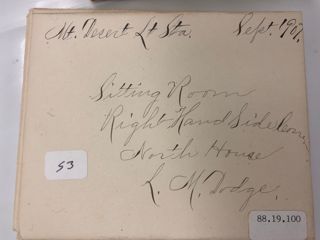 Mt. Desert Lt Sta. Sept. 1901.
Sitting Room
Right Hand Side
North House
L. M. Dodge.
53
88.19.100